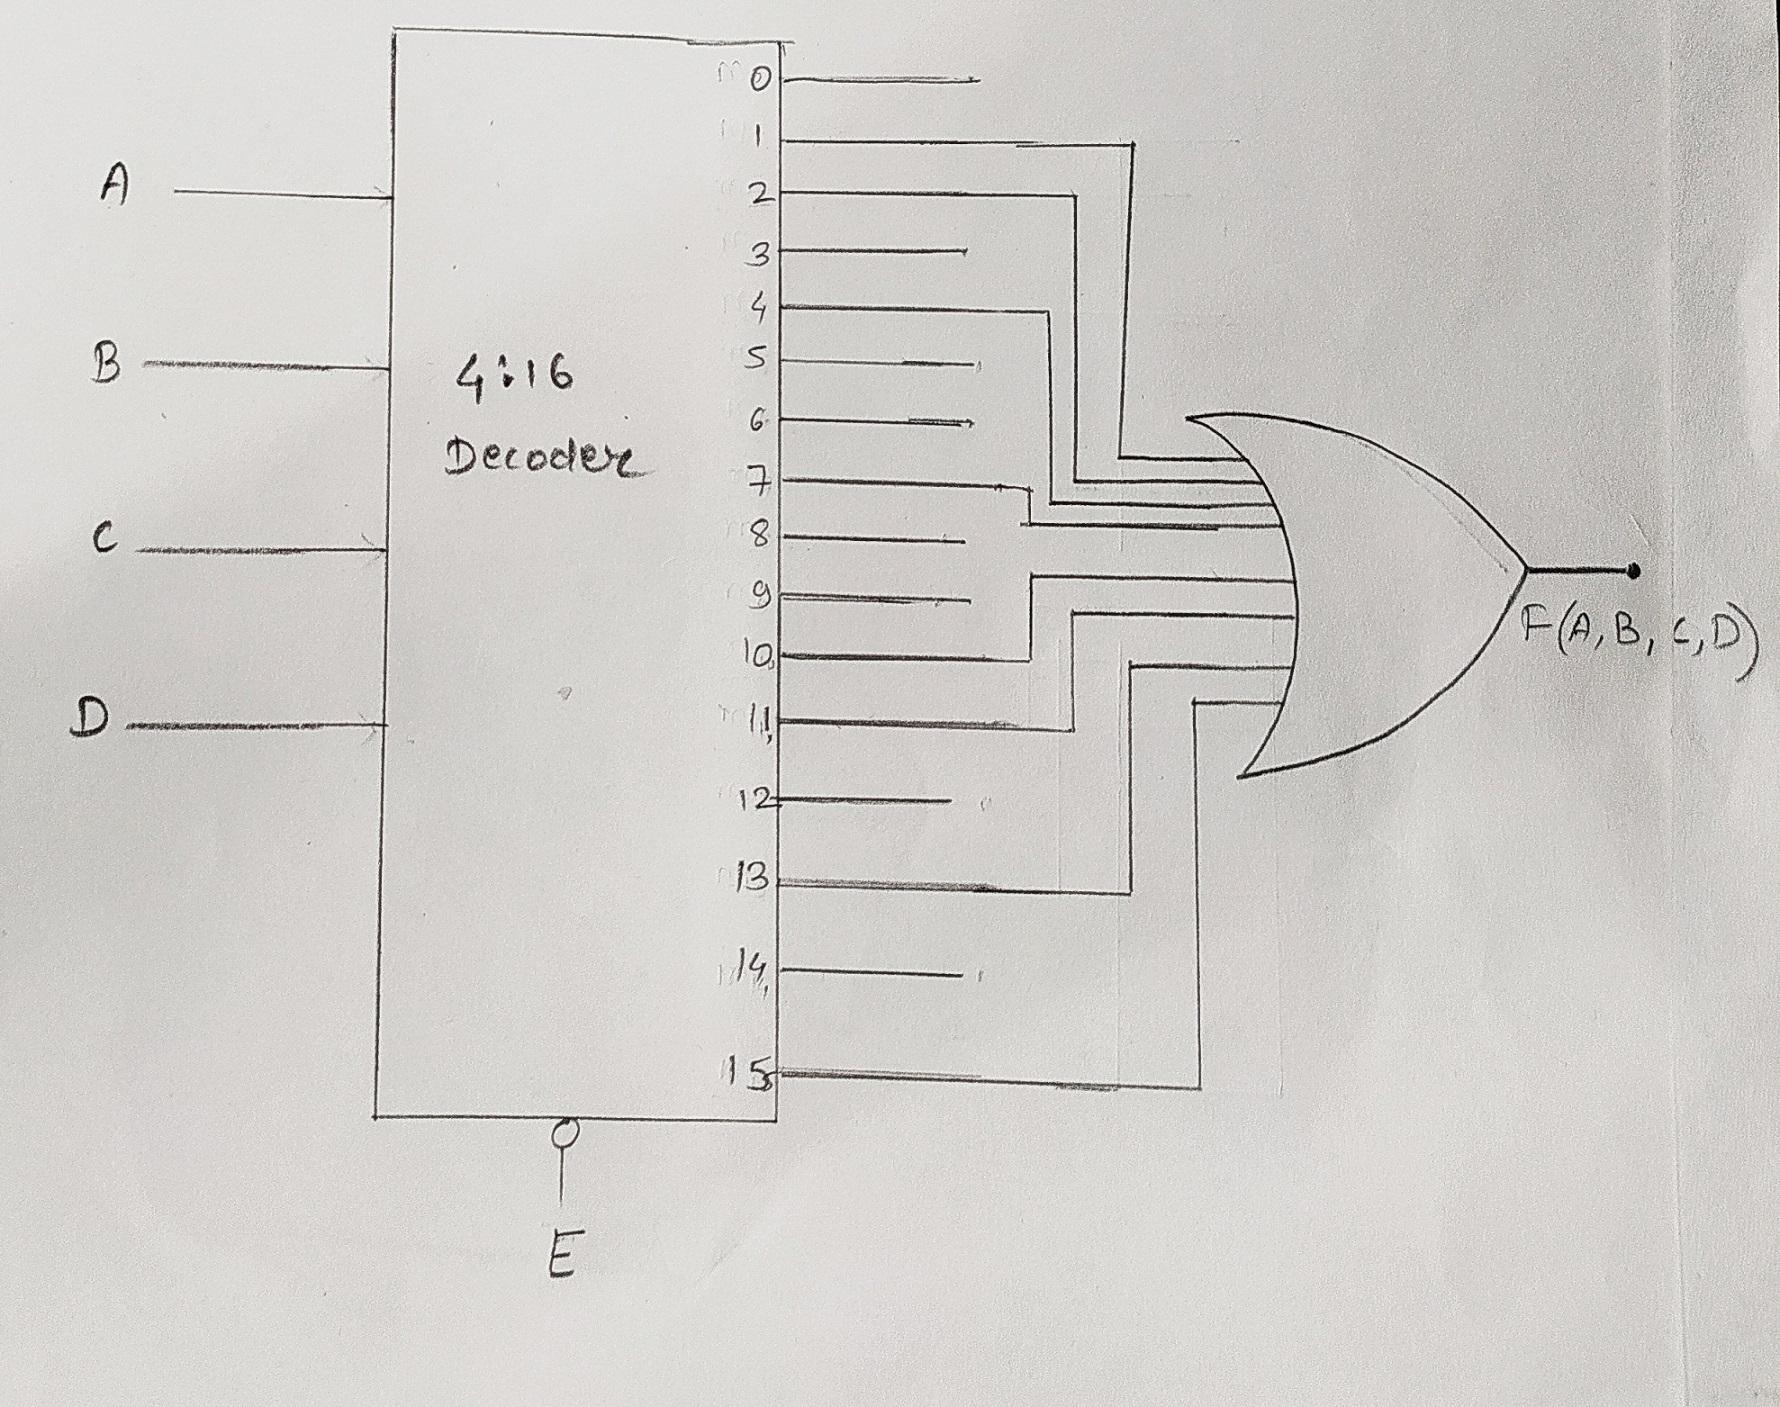 A
B
C
D
4:16
Decoder
0
1
2
3
4
5
6
7
8
9
10
11
12
13
14
15
E
F(A,B,C,D)